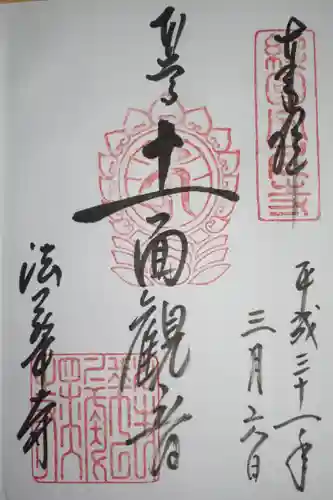 平成三十一年
三月六日
本尊 十一面観音
法華寺